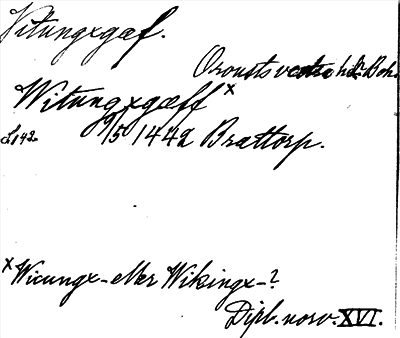 Vitungxgæf.
Orousts västra hd. Boh.
Witungxgæff x
S. 142 9/5 1442 Brattorp.
x Wicungx- eller Wikingx-?
Dipl. norv. XVI.